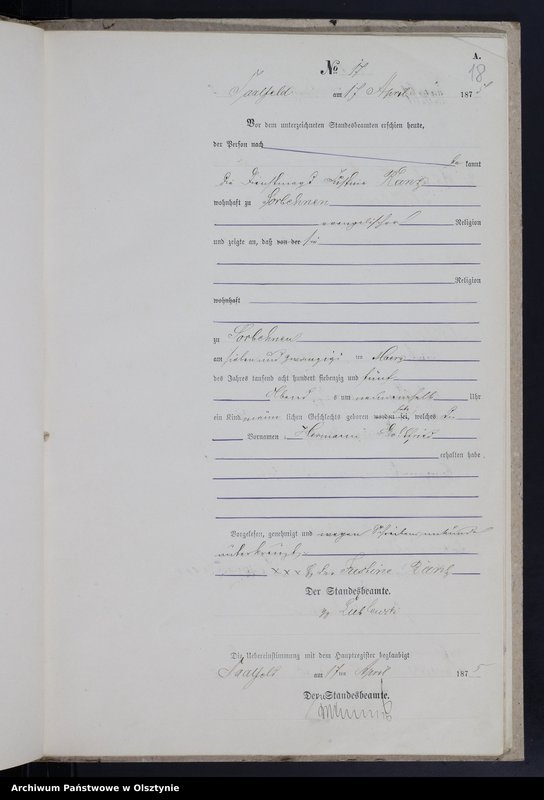 A.
18
No 17
Saalfeld am 17 April 1875
Vor dem unterzeichneten Standesbeamten erschien heute,
der Person nach
be kannt
die Dienstmagd Justine
wohnhaft zu Sorbehnen
evangelischer Religion
und zeigte an, daß von der sie
Religion
wohnhaft
zu Sorbehnen
am sieben und zwanzigs ten Maerz
des Jahres tausend acht hundert siebenzig und fünf
Abend s um neun einhalb Uhr
ein Kind männ lichen Geschlechts geboren worden sei, welches die
Vornamen Hermann Gottfried
erhalten habe
Vorgelesen, genehmigt und wegen Schreibensunkunde
unterkreuzt.
xxx der Justine
Der Standesbeamte.
Die Uebereinstimmung mit dem Hauptregister beglaubigt
Saalfeld am 17ten April 1875
Der Standesbeamte.
Archiwum Państwowe w Olsztynie